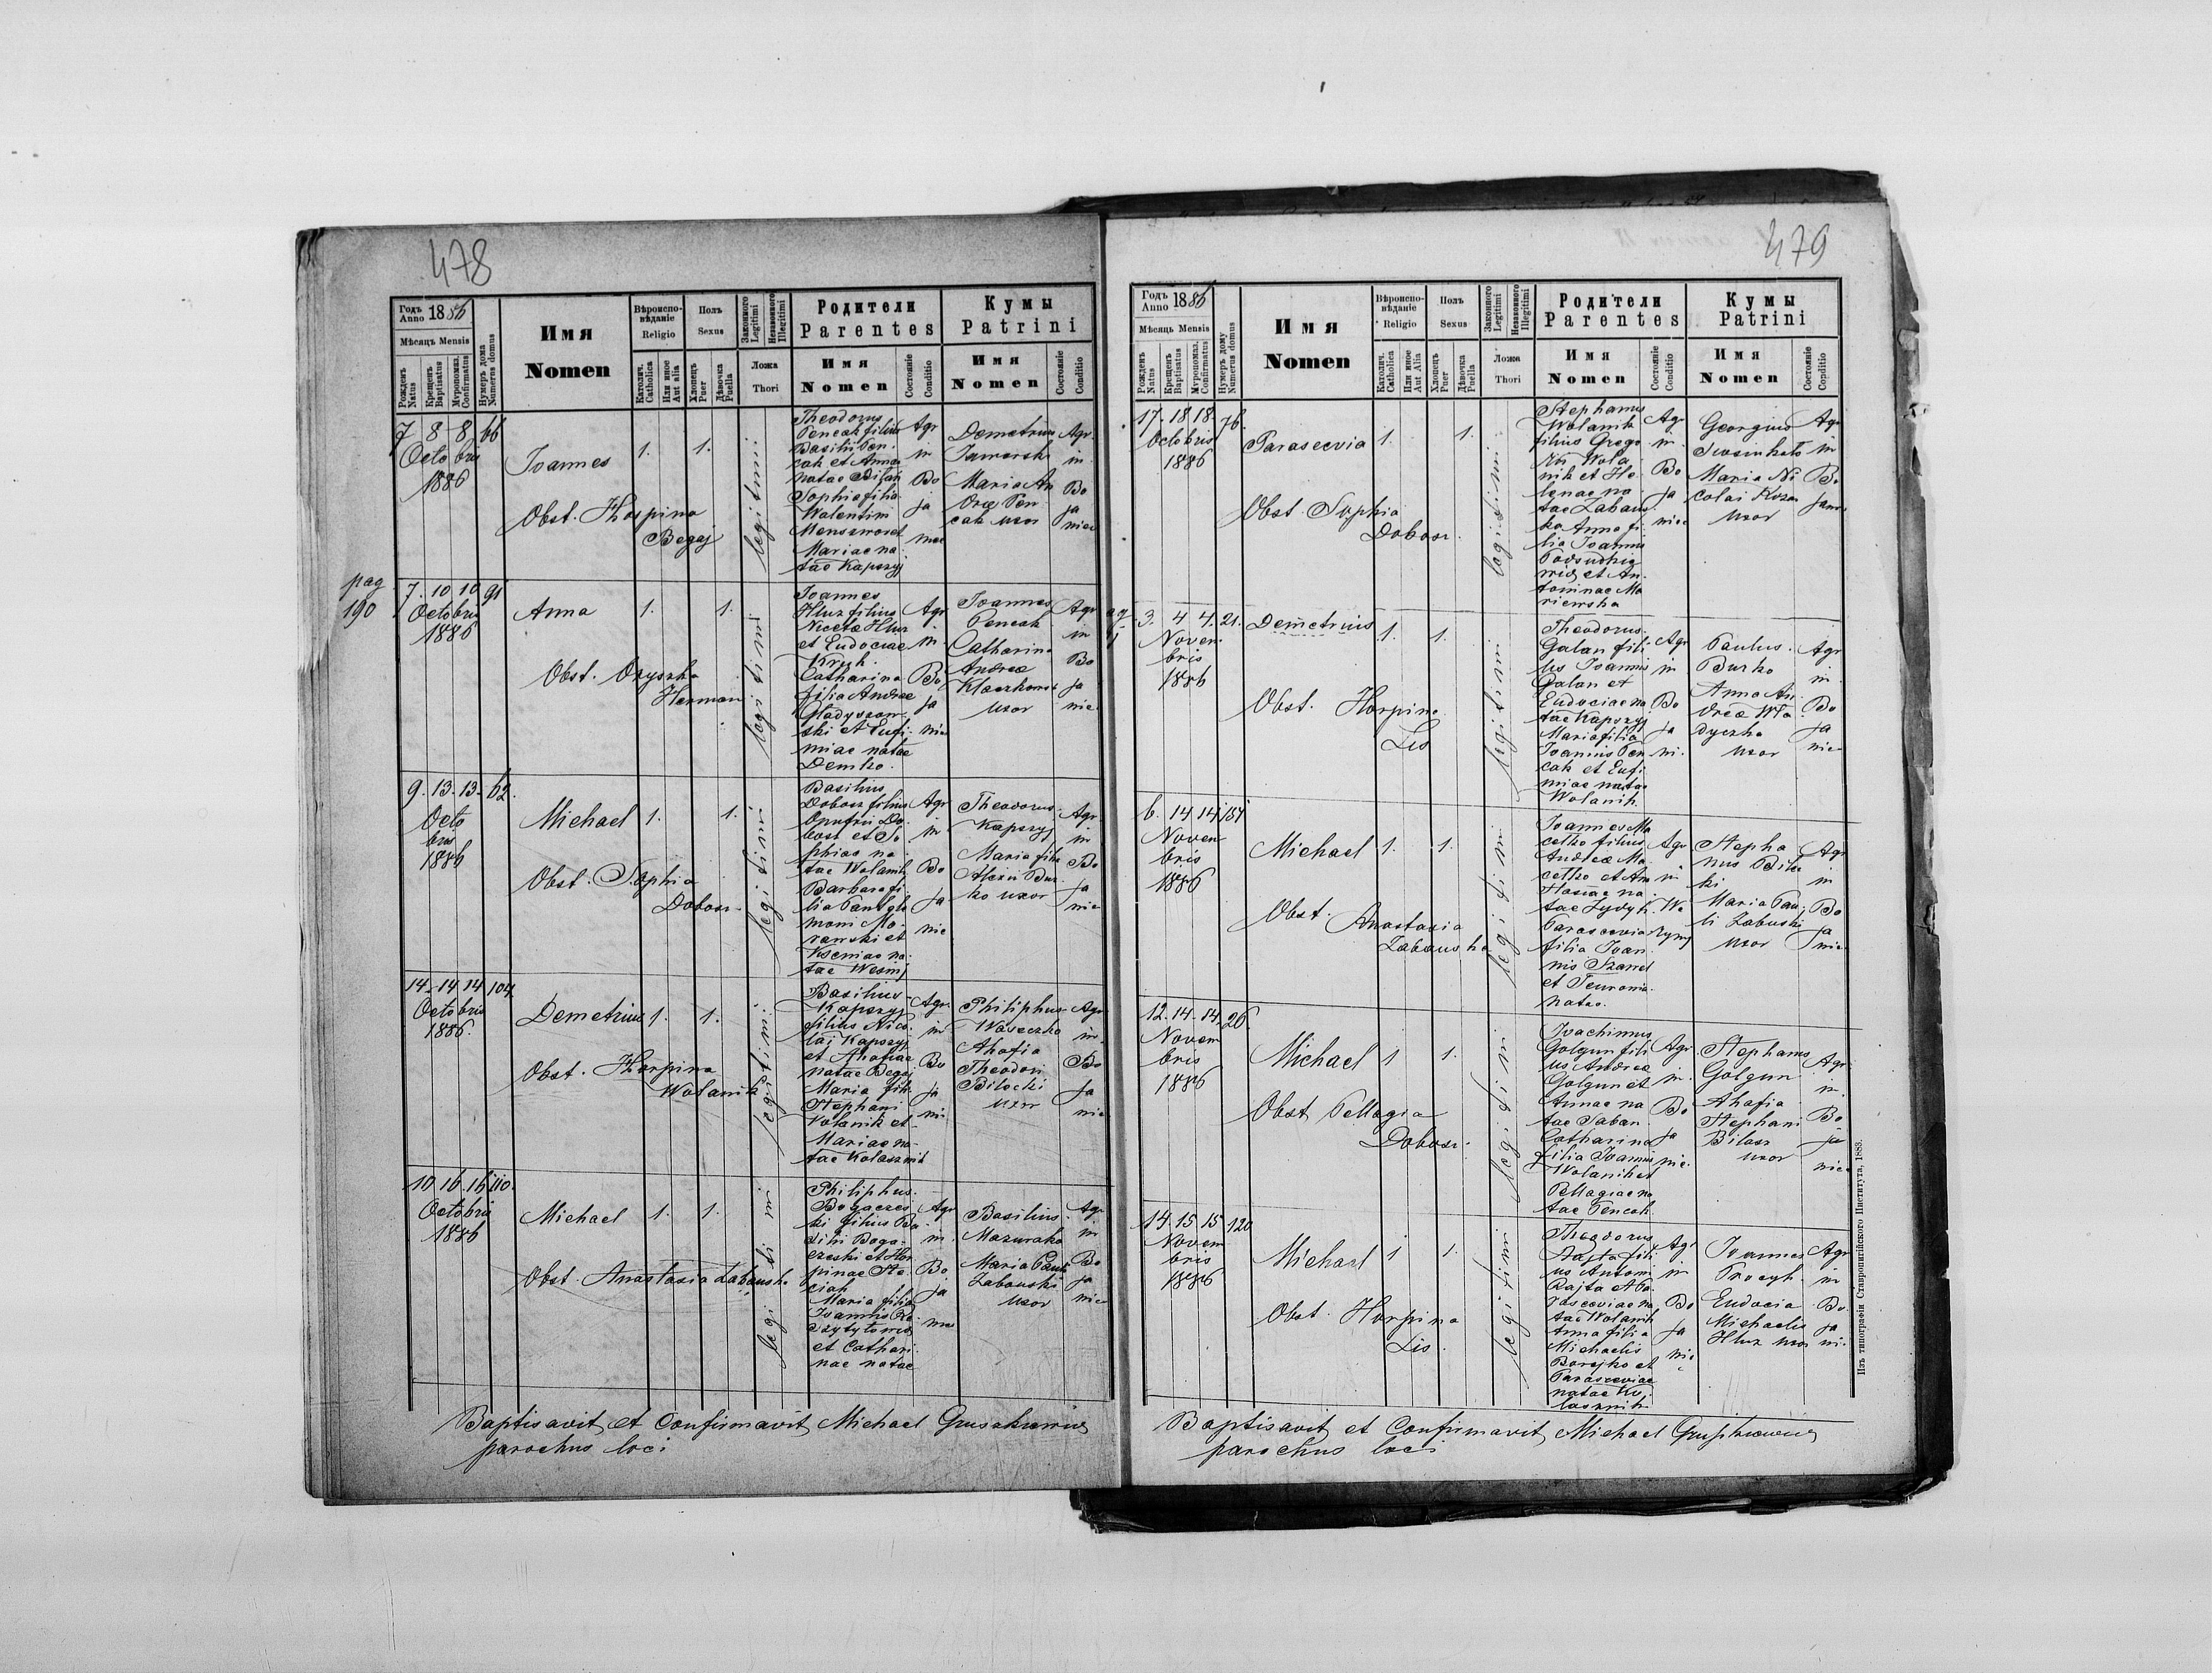 478
Годъ Anno 1886
Мѣсяцъ Mensis
Рожденъ Natus
Крещенъ Baptisatus
Мѵропомаз. Confirmatus
Нумеръ дома Numerus domus
Имя
Nomen
Вѣроисповѣданіе
Religio
Католич. Catholica
Или иное Aut alia
Полъ
Sexus
Хлопецъ Puer
Дѣвочка Puella
Законного Legitimi
Незаконного Illegitimi
Ложа
Thori
Родители
Parentes
Имя
Nomen
Состояніе
Conditio
Кумы
Patrini
Имя
Nomen
Состояніе
Conditio
7 8 8 66
Octobris
1886
Joannes
1. 1.
Obst. Horpina
Begaj
legitimi
Theodorus
Pencak filius
Basilii Pen
cak et Anna
natae Bilan
Sophia filia
Walentini
Mariae na
tae Kapszyj
Agr
in
Bo
ja
nice
Demetrius
Jaworski
Maria An
dreæ Pen
cak uxor
Agr.
in
Bo
ja
nice
pag
190
7. 10 10 91
Octobris
1886
Anna
1. 1.
Obst. Oryszka
Herman
legitimi
Joannes
Hluz filius
Nicetæ Hluz
et Eudociae
Kryk.
Catharina
filia Andreæ
Gladyszow
ski et Eufi
miae natae
Demko.
Agr
in
Bo
ja
nic
Joannes
Pencak
Catharina
Andreæ
uxor
Agr
in
Bo
ja
nic
9. 13. 13. 62.
Octo
bris
1886
Michael
1. 1.
Obst. Sophia
Dobosz
legitimi
Basilius
Dobosz filius
Onufrii Do
bosz et So
phiae na
tae Wolanik
Barbara fi
lia Pantale
moni Mo
rawski et
Kseniae na
tae Wesnij
Agr
in
Bo
ja
nic
Theodorus
Kapszyj
Maria filia
Alexii Bur
ko uxor
Agr
in
Bo
ja
nic
14. 14 14 104
Octobris
1886.
Demetrius
1. 1.
Obst. Horpina
Wolanik
legitimi
Basilius
Kapszyj
filius Nico
lai Kapszyj
et Ahafiae
natae Begaj
Maria filia
Stephani
Wolanik et
Mariae na
tae Kolasznik
Agr.
in
Bo
ja
ni
Philiphus
Waseczko
Ahafia
Theodori
Bilocki
uxor
Agr
in.
Bo
ja
nic
10 16. 16 110.
Octobris
1886
Michael
1. 1.
Obst. Anastasia Zabawska
legitimi
Philiphus.
Bogaczes
ki filius Ba
silii Boga
czeski et Hor
pinae Ste
ciak
Maria filia
Joannis
et Cathari
nae natae
Agr
in.
Bo
ja
nic
Basilius
Mazuraka
Maria Pauli
Zabawski
uxor
Agr
in
Bo
ja
nic
Baptisavit et Confirmavit Michael
parochus loci
479
Годъ Anno 1886
Мѣсяцъ Mensis
Рожденъ Natus
Крещенъ Baptisatus
Мѵропомаз. Confirmatus
Нумеръ дому Numerus domus
Имя
Nomen
Вѣроисповѣданіе
Religio
Католич. Catholica
Или иное Aut Alia
Полъ
Sexus
Хлопецъ Puer
Дѣвочка Puella
Законного Legitimi
Незаконного Illegitimi
Ложа
Thori
Родители
Parentes
Имя
Nomen
Состояніе
Conditio
Кумы
Patrini
Имя
Nomen
Состояніе
Conditio
17. 18 18. 76.
Octobris
1886
Parascevia
1. 1.
Obst. Sophia
Dobosz.
legitimi
Stephanus
Wolanik
filius Grego
rii Wola
nik et He
lenae na
tae Zabaws
ka Anna fi
lia Joannis
et An
toninae Ma
riewska
Agr
in
Bo
ja
nice
Georgius
Maria Ni
colai Koza
uxor
Agr
in
Bo
janic
3. 4 4. 21.
Novem
bris
1886
Demetrius
1. 1.
Obst. Horpina
Lis
legitimi
Theodorus
Galan fili
us Joannis
Galan et
Eudociae na
tae Kapszyj
Maria filia
Joannis Pen
cak et Eufi
miae natae
Wolanik
Agr
in
Bo
ja
ni.
Paulus
Burko
Anna An
dreæ Wla
dyczko
uxor
Agr
in
Bo
ja
nic
6. 14 14 187
Novem
bris
1886
Michael
1. 1.
Obst. Anastasia
Zabawska
legitimi
Joannes Ma
celko filius
Andreæ Ma
celko et Ana
stasiae na
tae Zydyk
Parascevia
filia Joan
nis Szawel
et Teuronia
natae.
Agr
in
Stepha
nus Bilec
ki
Maria Pau
li Zabuski
uxor
Agr
in
Bo
ja
nic
12. 14. 14. 26
Novem
bris
1886
Michael
1 1.
Obst Pellagia
Dobosz
legitimi
Joachimus
Golgun fili
us Andreæ
Golgun et
Annae na
tae Saban
Catharina
filia Joannis
Wolanik et
Pellagiae na
tae Pencak.
Agr
in
Bo
ja
nic.
Stephanus
Golgun
Ahafia
Stephani
Bilasz
uxor
Agr
in
Bo
ja
nic
14. 15 15 120
Novem
bris
1886
Michael
1 1.
Obst. Horpina
Lis.
legitimi
Theodorus
Rajta fili
us Antoni
Rajta et Pa
rasceviae na
tae Wolanik
Anna filia
Michaelis
Borejko et
Parasceviae
natae Ko
lasznik
Agr
in
Bo
ja
nic
Joannes
Procyk
Eudocia
Michaelis
Hluz uxor
Agr
in
Bo
ja
ni.
Baptisavit et Confirmavit Michael
parochus loci
Изъ типографіи Ставропигійского Института, 1883.